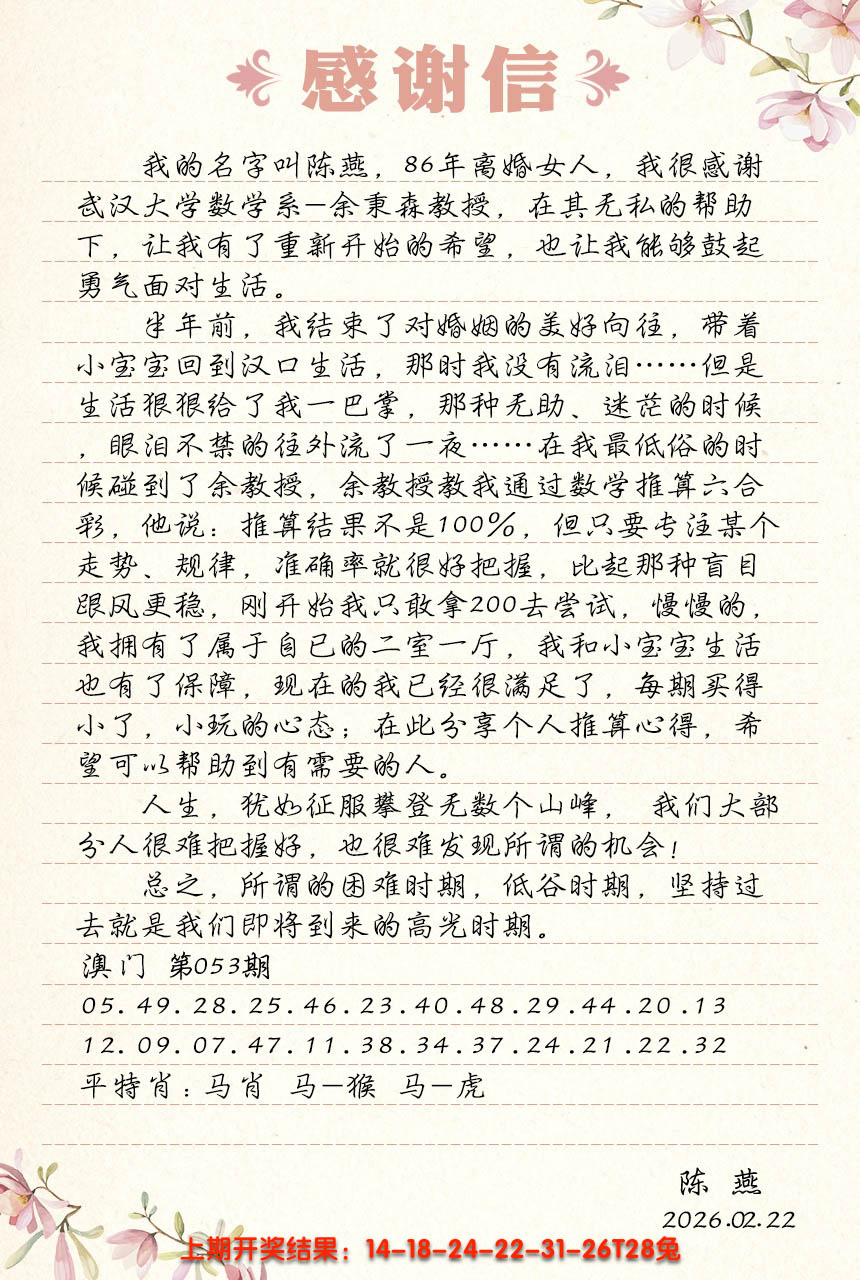 感谢信
我的名字叫陈燕，86年离婚女人，我很感谢
武汉大学数学系—余秉森教授，在其无私的帮助
下，让我有了重新开始的希望，也让我能够鼓起
勇气面对生活。
半年前，我结束了对婚姻的美好向往，带着
小宝宝回到汉口生活，那时我没有流泪……但是
生活狠狠给了我一巴掌，那种无助、迷茫的时候
，眼泪不禁的往外流了一夜……在我最低俗的时
候碰到了余教授，余教授教我通过数学推算六合
彩，他说：推算结果不是100%，但只要专注某个
走势、规律，准确率就很好把握，比起那种盲目
跟风更稳，刚开始我只敢拿200去尝试，慢慢的，
我拥有了属于自已的二室一厅，我和小宝宝生活
也有了保障，现在的我已经很满足了，每期买得
小了，小玩的心态；在此分享个人推算心得，希
望可以帮助到有需要的人。
人生，犹如征服攀登无数个山峰， 我们大部
分人很难把握好，也很难发现所谓的机会！
总之，所谓的困难时期，低谷时期，坚持过
去就是我们即将到来的高光时期。
澳门 第053期
05.49.28.25.46.23.40.48.29.44.20.13
12.09.07.47.11.38.34.37.24.21.22.32
平特肖：马肖 马—猴 马—虎
陈 燕
2026.02.22
上期开奖结果：14-18-24-22-31-26T28兔